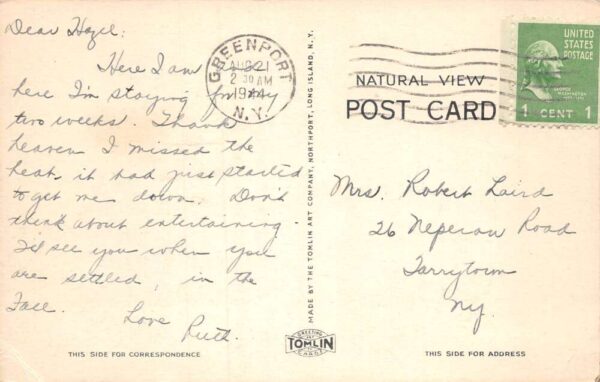 Dear Hazel:
Here I am &
here I'm staying for my
two weeks. Thank
heaven I missed the
heat, it had just started
to get me down. Don't
think about entertaining.
I'll see you when you
are settled, in the
Fall.
Love
Ruth.
THIS SIDE FOR CORRESPONDENCE
GREENPORT
AUG 21
2 30 AM
1944
N.Y.
MADE BY THE TOMLIN ART COMPANY, NORTHPORT, LONG ISLAND, N. Y.
GREETING
TOMLIN
CARDS
NATURAL VIEW
POST CARD
UNITED
STATES
POSTAGE
GEORGE
WASHINGTON
1 CENT 1
Mrs. Robert Laird
26 Neperan Road
Tarrytown
Ny.
THIS SIDE FOR ADDRESS